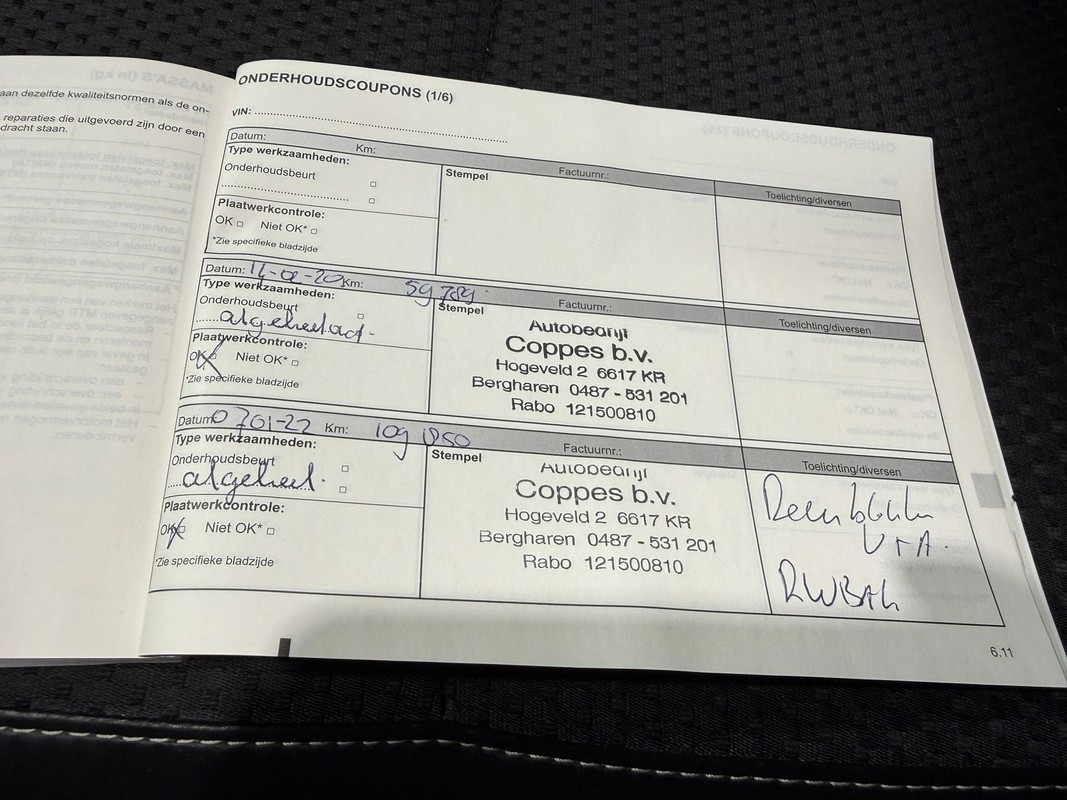 aan dezelfde kwaliteitsnormen als de on-
reparaties die uitgevoerd zijn door een
dracht staan.
ONDERHOUDSCOUPONS (1/6)
VIN:
Datum: Km:
Type werkzaamheden:
Onderhoudsbeurt
Plaatwerkcontrole:
OK Niet OK*
*Zie specifieke bladzijde
Stempel
Factuurnr.:
Toelichting/diversen
Datum: Km:
Type werkzaamheden:
Onderhoudsbeurt
Plaatwerkcontrole:
OK Niet OK*
*Zie specifieke bladzijde
Stempel
Factuurnr.:
Autobedrijf
Coppes b.v.
Hogeveld 2 6617 KR
Bergharen 0487 - 531 201
Rabo 121500810
Toelichting/diversen
Datum: Km:
Type werkzaamheden:
Onderhoudsbeurt
Plaatwerkcontrole:
OK Niet OK*
*Zie specifieke bladzijde
Stempel
Factuurnr.:
Autobedrijf
Coppes b.v.
Hogeveld 2 6617 KR
Bergharen 0487 - 531 201
Rabo 121500810
Toelichting/diversen
6.11